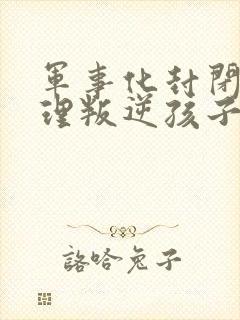 軍事化封閉
理叛逆孩子
諮哈兔子